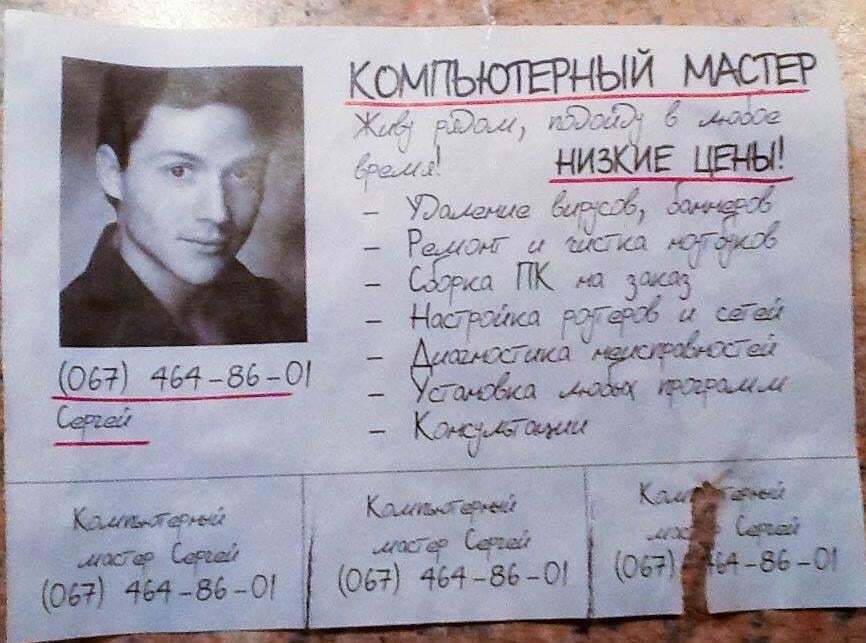 КОМПЬЮТЕРНЫЙ МАСТЕР
Живу рядом, подойду в любое
время! НИЗКИЕ ЦЕНЫ!
- Удаление вирусов, баннеров
- Ремонт и чистка ноутбуков
- Сборка ПК на заказ
- Настройка роутеров и сетей
- Диагностика неисправностей
- Установка любых программ
- Консультации
(067) 464-86-01
Сергей
Компьютерный
мастер Сергей
(067) 464-86-01
Компьютерный
мастер Сергей
(067) 464-86-01
Сергей
(067) 64-86-01